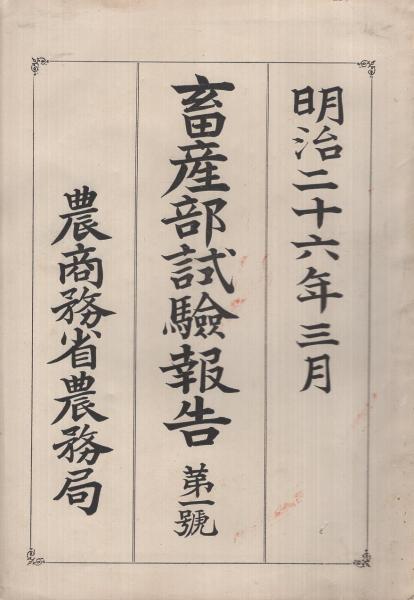 明治二十六年三月
畜産部試驗報告 第一號
農商務省農務局